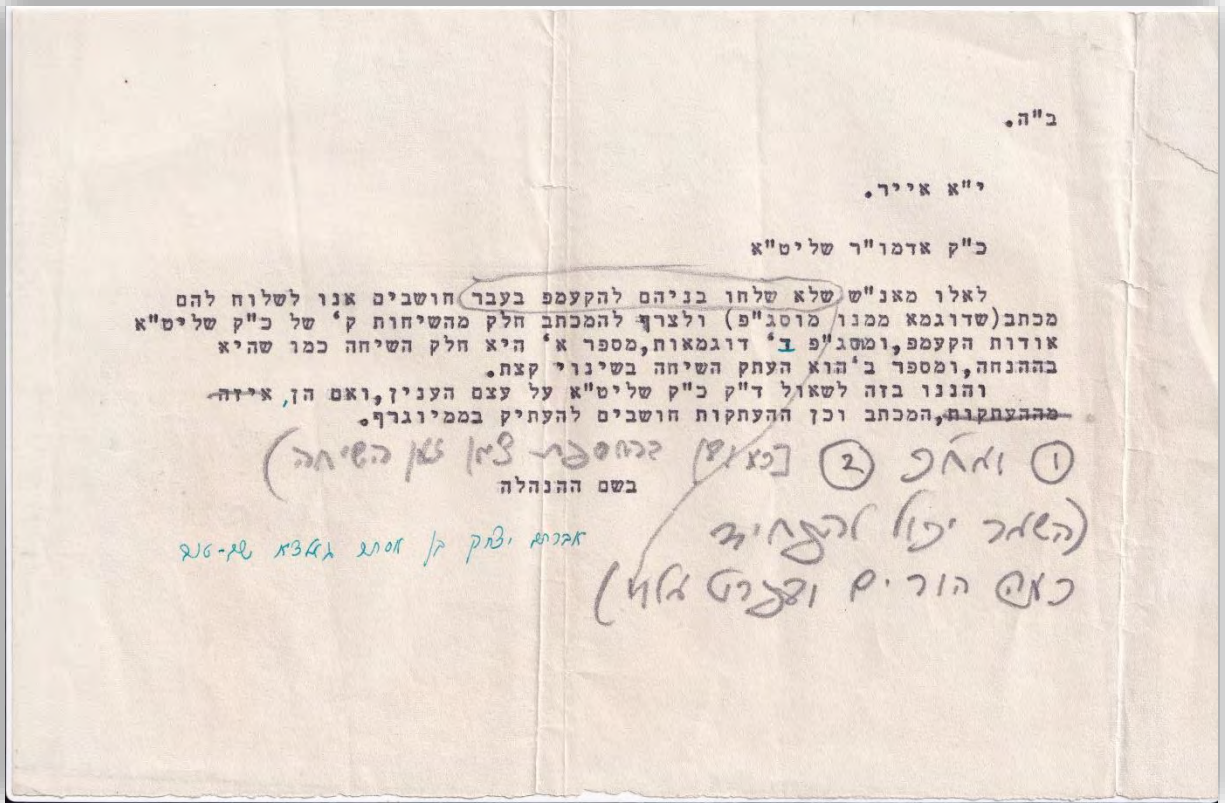 ב"ה.
י"א אייר.
כ"ק אדמו"ר שליט"א
לאלו מאנ"ש שלא שלחו בניהם להקעמפ בעבר חושבים אנו לשלוח להם
מכתב(שדוגמא ממנו מוסג"פ) ולצרף להמכתב חלק מהשיחות ק' של כ"ק שליט"א
אודות הקעמפ,ומסג"פ ב' דוגמאות,מספר א' היא חלק השיחה כמו שהיא
בההנחה,ומספר ב'הוא העתק השיחה בשינוי קצת.
והננו בזה לשאול ד"ק כ"ק שליט"א על עצם הענין,ואם הן, איזה
מההעתקות,המכתב וכן ההעתקות חושבים להעתיק בממיוגרף.
1 2 השיחה)
בשם ההנהלה
(השמר יכול להפחיד
אברהם יצחק בן אסתר שם-טוב
כמה הורים